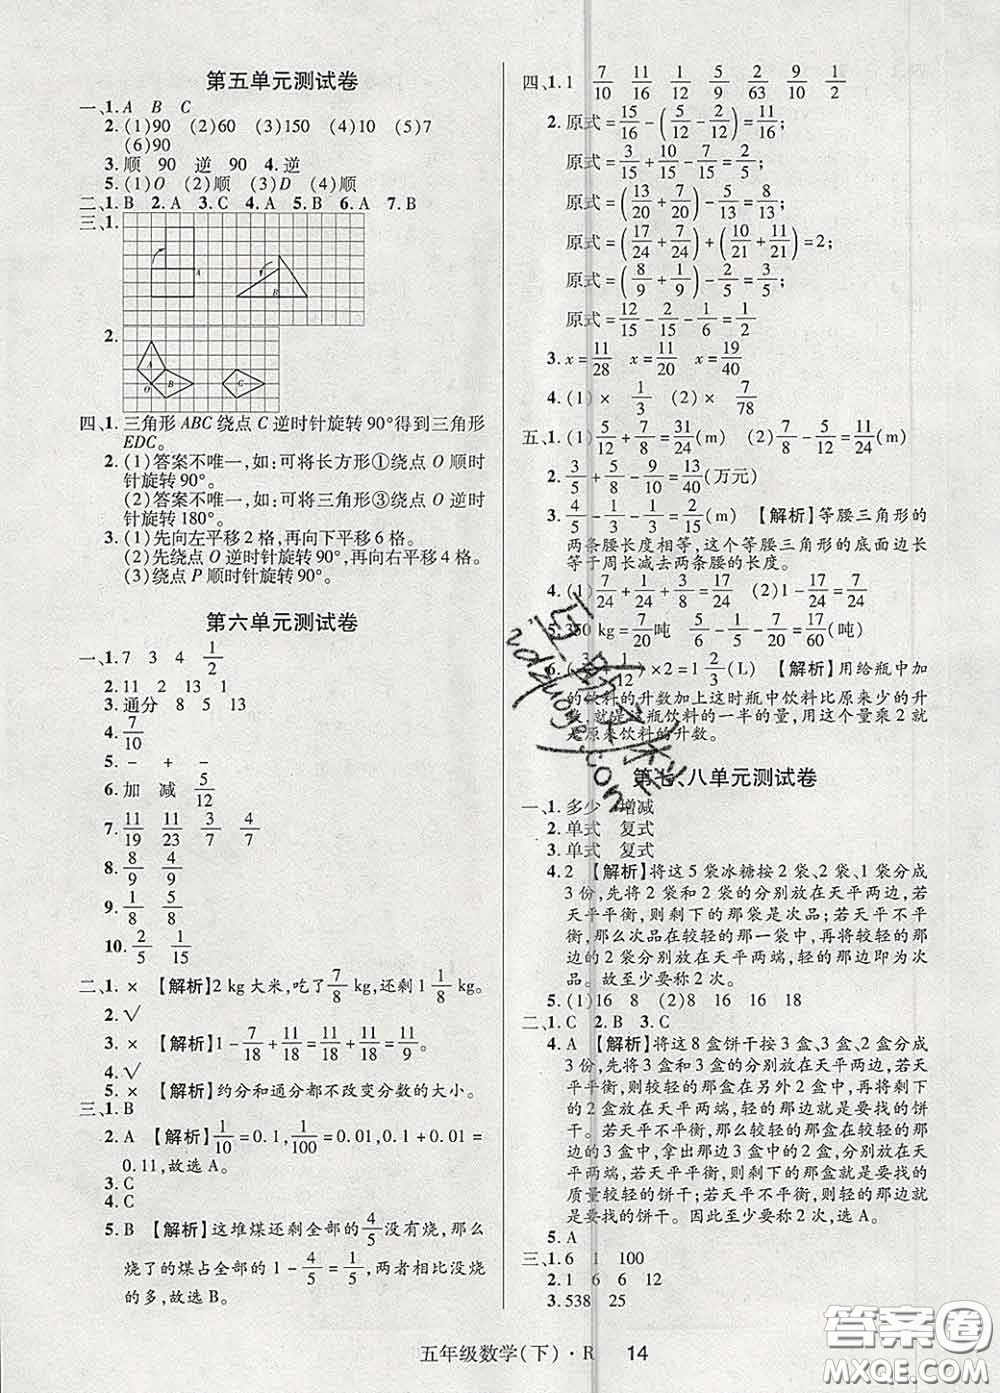 第五单元测试卷
一、1. A B C
2. (1)90 (2)60 (3)150 (4)10 (5)7
(6)90
3. 顺 90 逆 90 4. 逆
5. (1)O (2)顺 (3)D (4)顺
二、1. B 2. A 3. C 4. A 5. B 6. A 7. B
三、1.
A
B
2.
A
O B C
四、1. 三角形 ABC 绕点 C 逆时针旋转 90°得到三角形
EDC。
2. (1)答案不唯一,如:可将长方形①绕点 O 顺时
针旋转 90°。
(2)答案不唯一,如:可将三角形③绕点 O 逆时
针旋转 180°。
3. (1)先向左平移 2 格,再向下平移 6 格。
(2)先绕点 O 逆时针旋转 90°,再向右平移 4 格。
(3)绕点 P 顺时针旋转 90°。
第六单元测试卷
一、1. 7 3 4 1/2
2. 11 2 13 1
3. 通分 8 5 13
4. 7/10
5. - + -
6. 加 减 5/12
7. 11/19 11/23 3/7 4/7
8. 8/9 4/9
9. 1/8 5/9
10. 2/5 1/15
二、1. × 【解析】2 kg 大米,吃了 7/8 kg,还剩 1 1/8 kg。
2. √
3. × 【解析】1-7/18+11/18=11/18+11/18=11/9。
4. √
5. × 【解析】约分和通分都不改变分数的大小。
三、1. B
2. A 【解析】1/10=0.1,1/100=0.01,0.1+0.01=
0.11,故选 A。
3. C
4. C
5. B 【解析】这堆煤还剩全部的 4/5 没有烧,那么
烧了的煤占全部的 1-4/5=1/5,两者相比没烧
的多,故选 B。
四、1. 1 7/10 11/16 1/12 5/9 2/63 9/10 1/2
2. 原式=15/16-(5/12-2/12)=11/16;
原式=3/15+10/15-7/15=2/5;
原式=(13/20+7/20)-5/13=8/13;
原式=(17/24+7/24)+(10/21+11/21)=2;
原式=(8/9+1/9)-2/5=3/5;
原式=12/15-2/15-1/6=1/2
3. x=11/28 x=11/15 x=19/40
4. (1) × 1/3 (2) × 7/78
五、1. (1)5/12+7/8=31/24(m) (2)7/8-5/12=11/24(m)
2. 3/5+5/8-9/10=13/40(万元)
3. 4/5-1/3-1/3=2/15(m) 【解析】等腰三角形的
两条腰长度相等,这个等腰三角形的底面边长
等于周长减去两条腰的长度。
4. (1)7/24+1/24+3/8=17/24 (2)1-17/24=7/24
5. 350 kg=7/20吨 5/6-1/5-7/20=17/60(吨)
6. ×2=1 2/3(L) 【解析】用给瓶中加
的饮料的升数加上这时瓶中饮料比原来少的升
数,就是这瓶饮料的一半的量,用这个量乘 2 就
是原来饮料的升数。
第七、八单元测试卷
一、1. 多少 增减
2. 单式 复式
3. 单式 复式
4. 2 【解析】将这 5 袋冰糖按 2 袋、2 袋、1 袋分成
3 份,先将 2 袋和 2 袋的分别放在天平两边,若
天平平衡,则剩下的那袋是次品;若天平不平
衡,那么次品在较轻的那一袋中,再将较轻的那
边的 2 袋分别放在天平两端,轻的那边就是次
品。故至少要称 2 次。
5. (1)16 8 (2)8 16 16 18
二、1. C 2. B 3. C
4. A 【解析】将这 8 盒饼干按 3 盒、3 盒、2 盒分成
3 份,先将 3 盒和 3 盒的分别放在天平两边,若天平平
衡,则较轻的那盒在另外 2 盒中,再将剩下的
2 盒放在天平两端,轻的那边就是要找的饼
干。若天平不平衡,那么较轻的那盒在较轻的那
边的 3 盒中,拿出那边 3 盒中的 2 盒,分别放在
天平两端,若天平平衡,则剩下的那盒是要找的
质量较轻的饼干;若天平不平衡,轻的那边就是
要找的饼干。因此至少要称 2 次,选 A。
5. A
三、1. 6 1 100
2. 1 6 6 12
3. 538 25
五年级数学(下)·R 14
答案圈
MXQE.COM
zuoyejingling.com